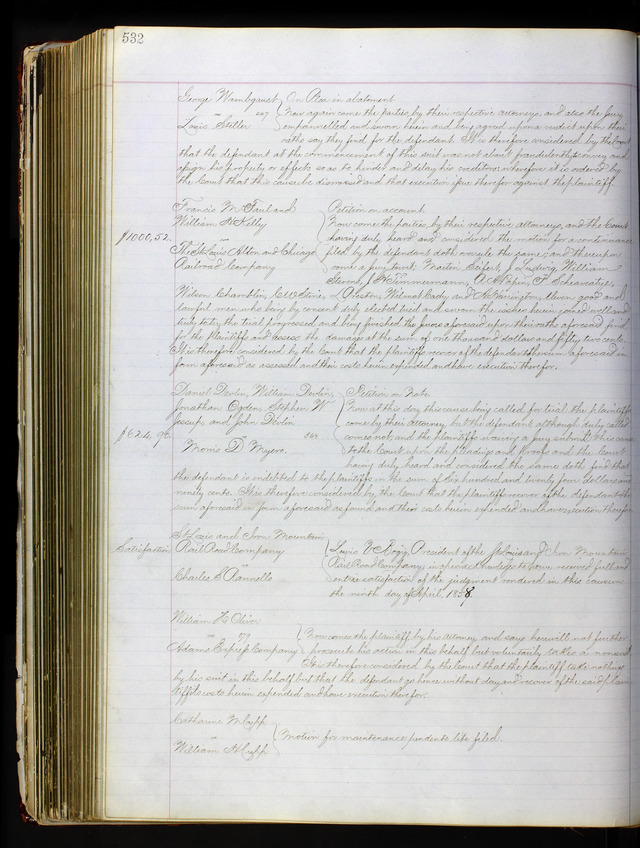 532
George Wambgaust } On Plea in abatement
vs 227 Now again come the parties by their respective attorneys, and also the jury
Louis Stiller empannelled and sworn herein and being agreed upon a verdict upon their
oaths say they find for the defendant. It is therefore considered by the Court
that the defendant at the commencement of this suit was not about fraudulently to convey and
assign his property or effects so as to hinder and delay his creditors wherefore it is ordered by
the Court that this cause be dismissed and that execution issue therefor against the plaintiff.
Francis M. and } Petition on account.
William H. Kelly Now come the parties by their respective attorneys, and the Court
$1000,52. vs having duly heard and considered the motion for a continuance
The St Louis Alton and Chicago filed by the defendant doth overrule the same, and thereupon
Railroad Company came a jury to wit: Martin J. Ludwig, William
H. Timmermann, A. T.
Wilson Chamblin, D. Preston, Wilmot Cady and Eleven good and
lawful men who being by consent duly elected tried and sworn the issues herein joined well and
truly to try, the trial progressed, and being finished the jurors aforesaid upon their oaths aforesaid find
for the plaintiffs and assess the damages at the sum of one thousand dollars and fifty two cents.
It is therefore considered by the Court that the plaintiffs recover of the defendant the sum aforesaid in
form aforesaid as assessed and their costs herein expended and have execution therefor.
Daniel Devlin, William Devlin, } Petition on Note.
Jonathan Ogden, Stephen W. Now at this day this cause being called for trial the plaintiffs
Jessup, and John Devlin come by their Attorney, but the defendant although duly called
$624,90. vs comes not, and the plaintiffs waiving a jury submit this cause
Morris D. Myers. to the Court upon the pleadings and proofs and the Court
having duly heard and considered the same doth find that
the defendant is indebted to the plaintiffs in the sum of Six hundred and twenty four dollars and
ninety cents. It is therefore considered by the Court that the plaintiffs recover of the defendant the
sum aforesaid in form aforesaid as found and their costs herein expended and have execution therefor
St Louis and Iron Mountain
Satisfaction Rail Road Company } Lewis V. Bogy, President of the St Louis and Iron Mountain
vs Rail Road Company, in open Court acknowledges to have received full and
Charles S. Rannells entire satisfaction of the judgment rendered in this cause on
the ninth day of April 1858.
William H. Oliver
vs 579 } Now comes the plaintiff by his Attorney and says he will not further
Adams Express Company prosecute his action in this behalf but voluntarily takes a nonsuit
It is therefore considered by the Court that the plaintiff take nothing
by his suit in this behalf but that the defendant go hence without day and recover of the said plain-
tiff his costs herein expended and have execution therefor.
Catharine M. Cupp
vs } Motion for maintenance pendente lite filed.
William H. Cupp